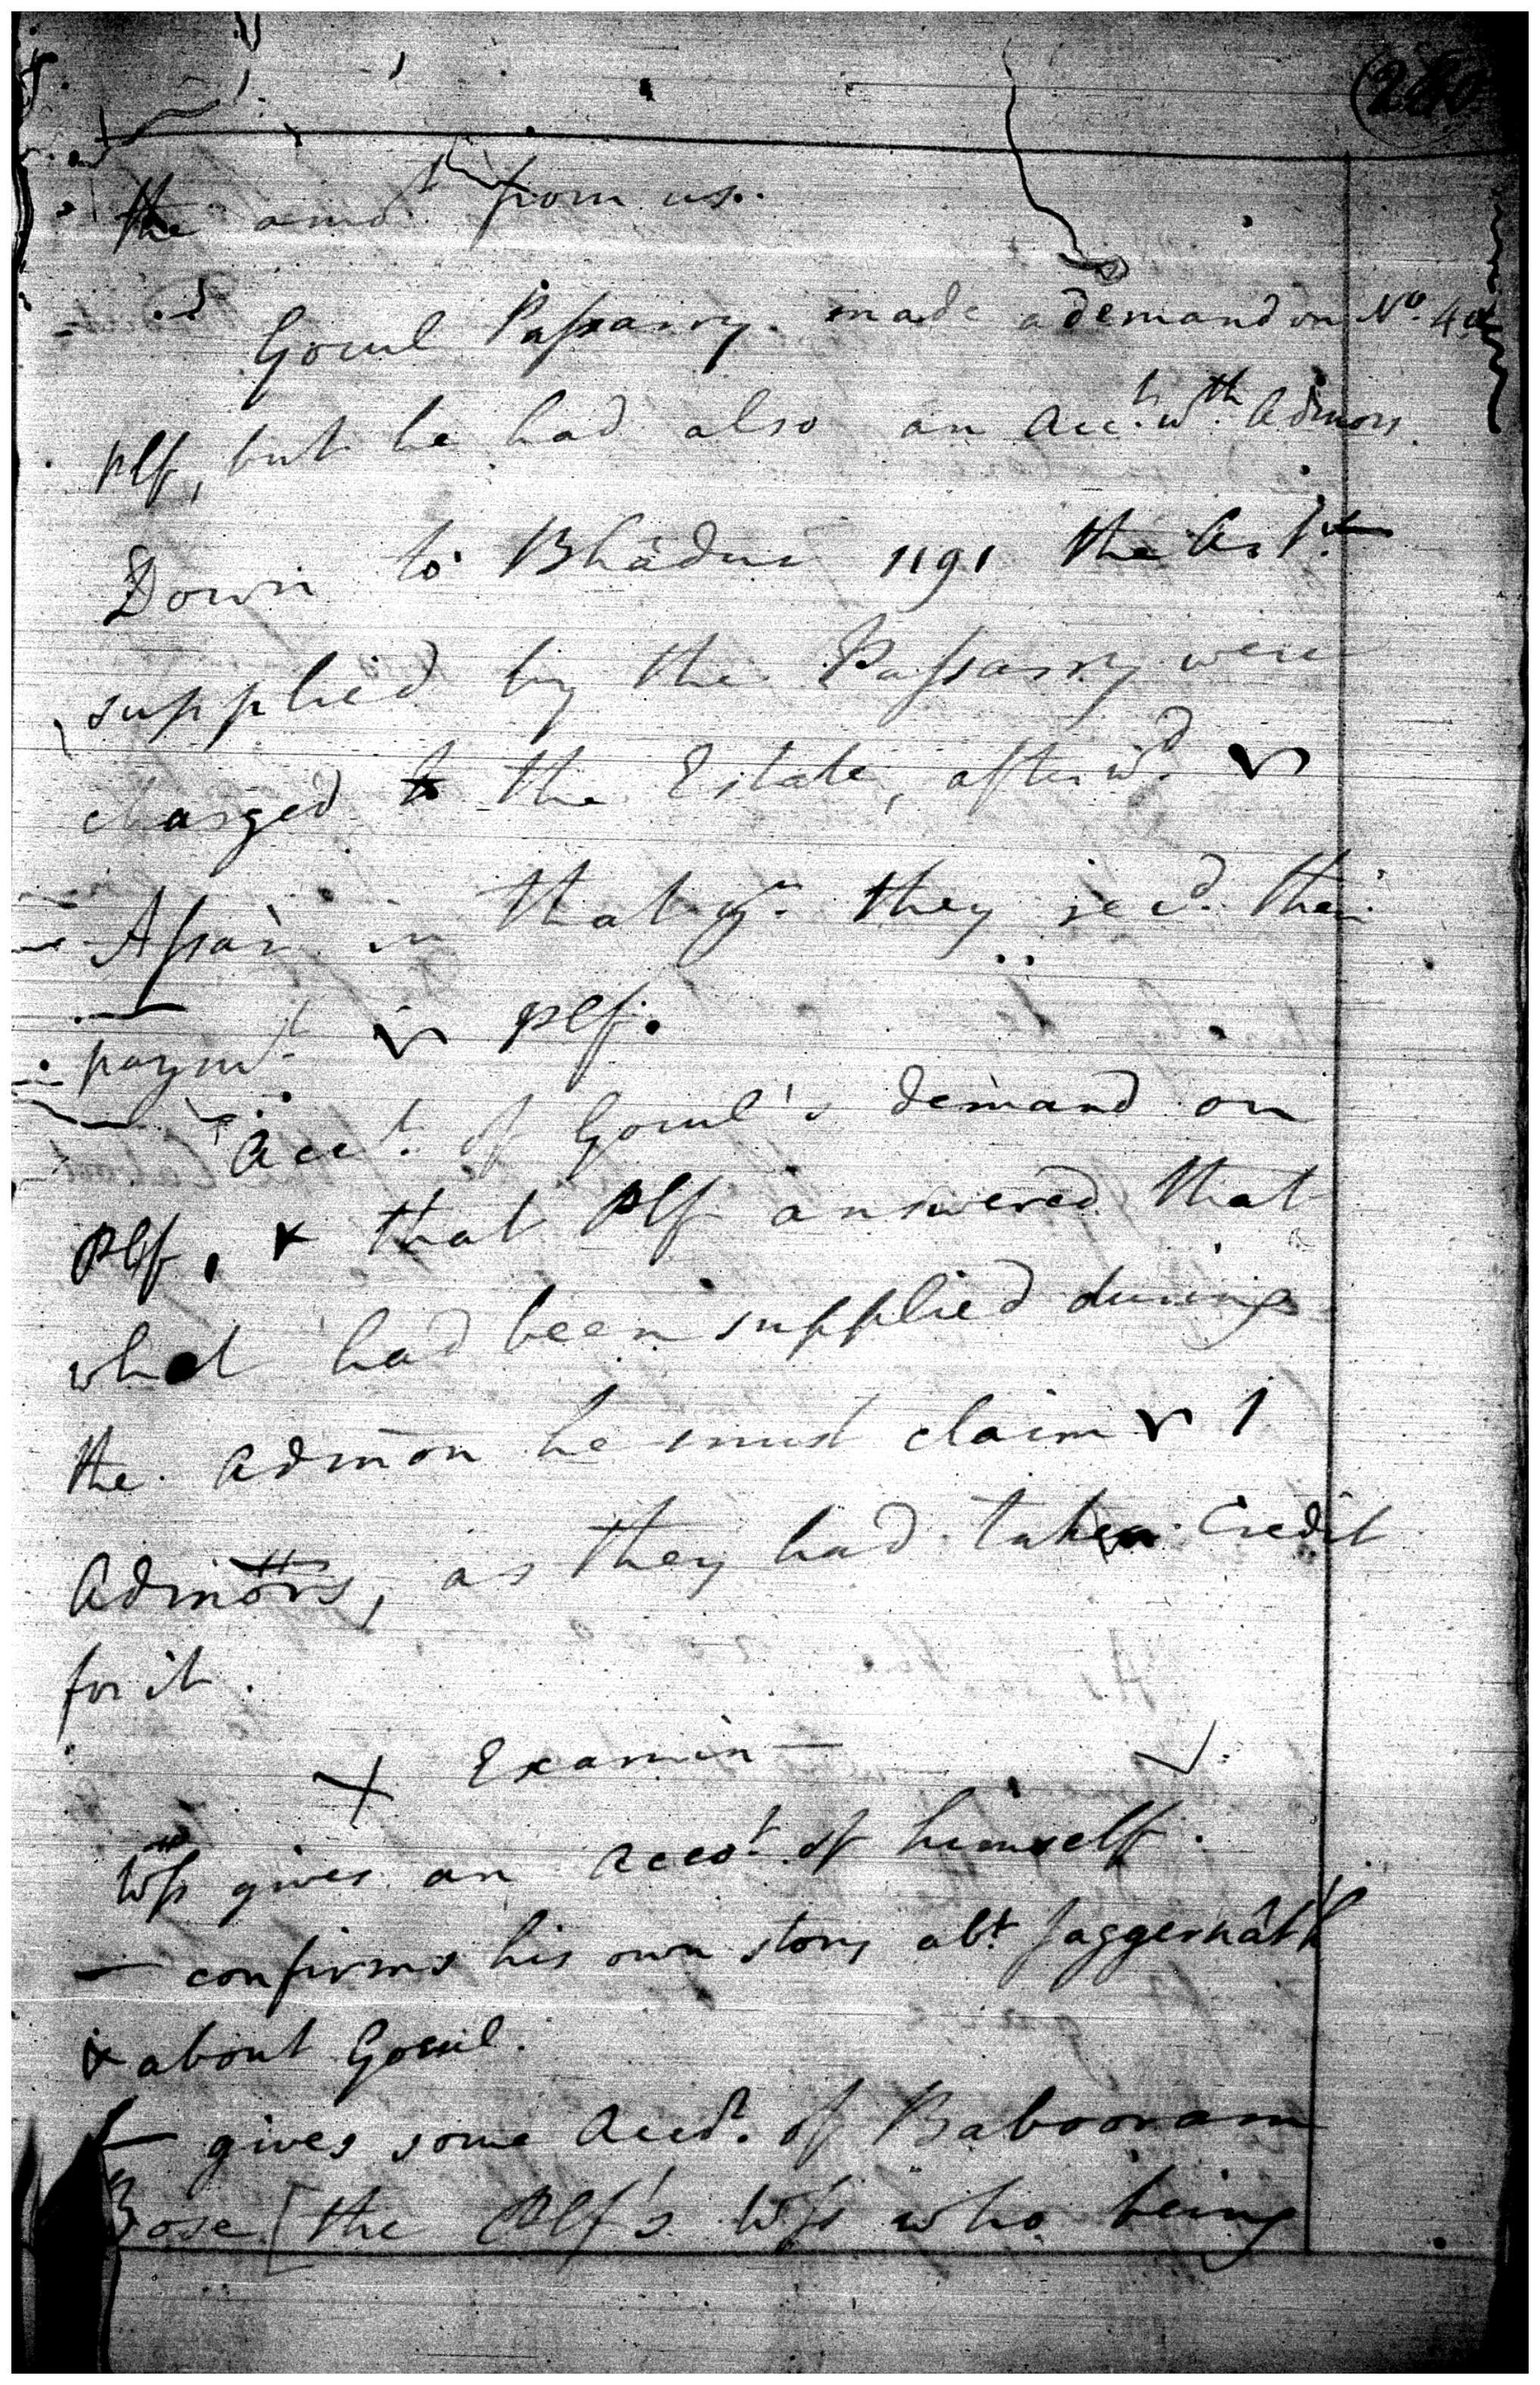 280
the amo.t from us.
Gocul Passarry. made a demand on No. 4
plf, but he had also an Acc.t wth Admors.
Down to Bhâdur 1191 the
supplied by the Passarry were
charged to the Estate, afterwd.
in that yr. they recd. their
paymt plf.
Acct. of Gocul's demand on
plf, & that Plf answered that
what had been supplied during
the Admon he must claim
Admors, as they had taken Credit
for it.
X Examin
Wss gives an Acco.t of himself.
— confirms his own story abt. Jaggernâth
& about Gocul.
— gives some Acct. of Babooram
Bose [the Plf's Wss who being